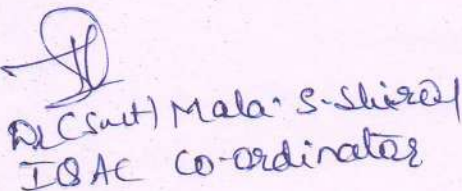 Dr (Smt) Mala. S. Shirol
IQAC Co-ordinator